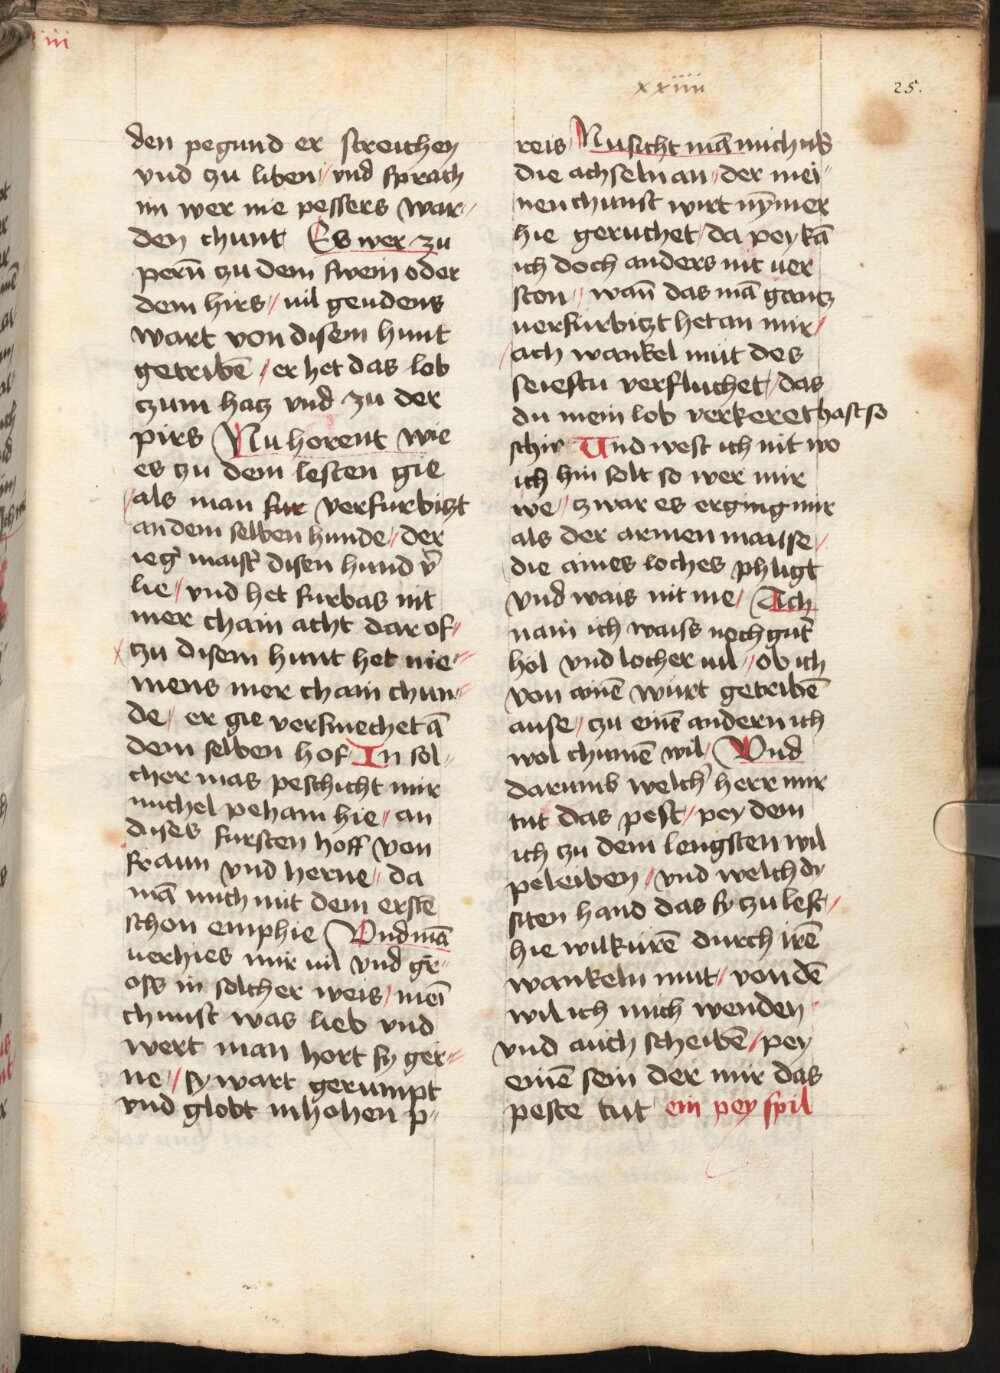 iii
xxiiii
25.
den pegund er streichen
vnd zu liben / vnd sprach
im wer nie pessers war-
den chunt Es wer zu
pern̄ zu dem swein oder
dem hirs / uil geudens
wart von disem hunt
getribē / er het das lob
zum hatz vnd zu der
pirs Nu horent wie
es zu dem lesten gie
als man fur verfurbitzt
an dem selben hunde / der
ieg' maist' disen hund v'
lie / vnd het furbas nit
mer chain acht dar of /
zu disem hunt het nie-
mens mer chain chun-
de / er gie versmechet ā
dem selben hof In sol-
cher mas peschicht mir
michel peham hie / an
dises fursten hoff von
fraun vnd herne / da
mā mich mit dem erstē
schon emphie Vnd mā
uerhies mir uil vnd gr-
oss in solcher weis / meī
chunst was lieb vnd
wert man hort sy ger-
ne / sy wart gerumpt
vnd globt in hohen p-
reis Nu sicht mā mich vb'
die achseln an / der mei-
nen chunst wirt nȳmer
hie geruchet / da pey kā
ich doch anders nit uer
sten / wan̄ das mā gantz
uerfurbitzt het an mir /
ach wankel mut des
seiestu verfluchet / das
du mein lob verkeret hast so
schir Vnd west ich nit wo
ich hin solt so wer mir
we / zwar es erging mir
als der armen maise /
die aines loches phligt
vnd wais nit me / Ach
nain ich waiss noch gut'
hol vnd locher uil / ob ich
von ainē wurt getribē
ause / zu einē andern ich
wol chumē wil / Vnd
darumb welch' herr mir
tut das pest / pey dem
ich zu dem lengsten wil
peleiben / vnd welch dy
siten hand das sy zu lest /
hie wilkurē durch irē
wankeln mut / von dē
wil ich mich wenden
vnd auch scheibē / pey
einē sein der mir das
peste tut ein pey spil